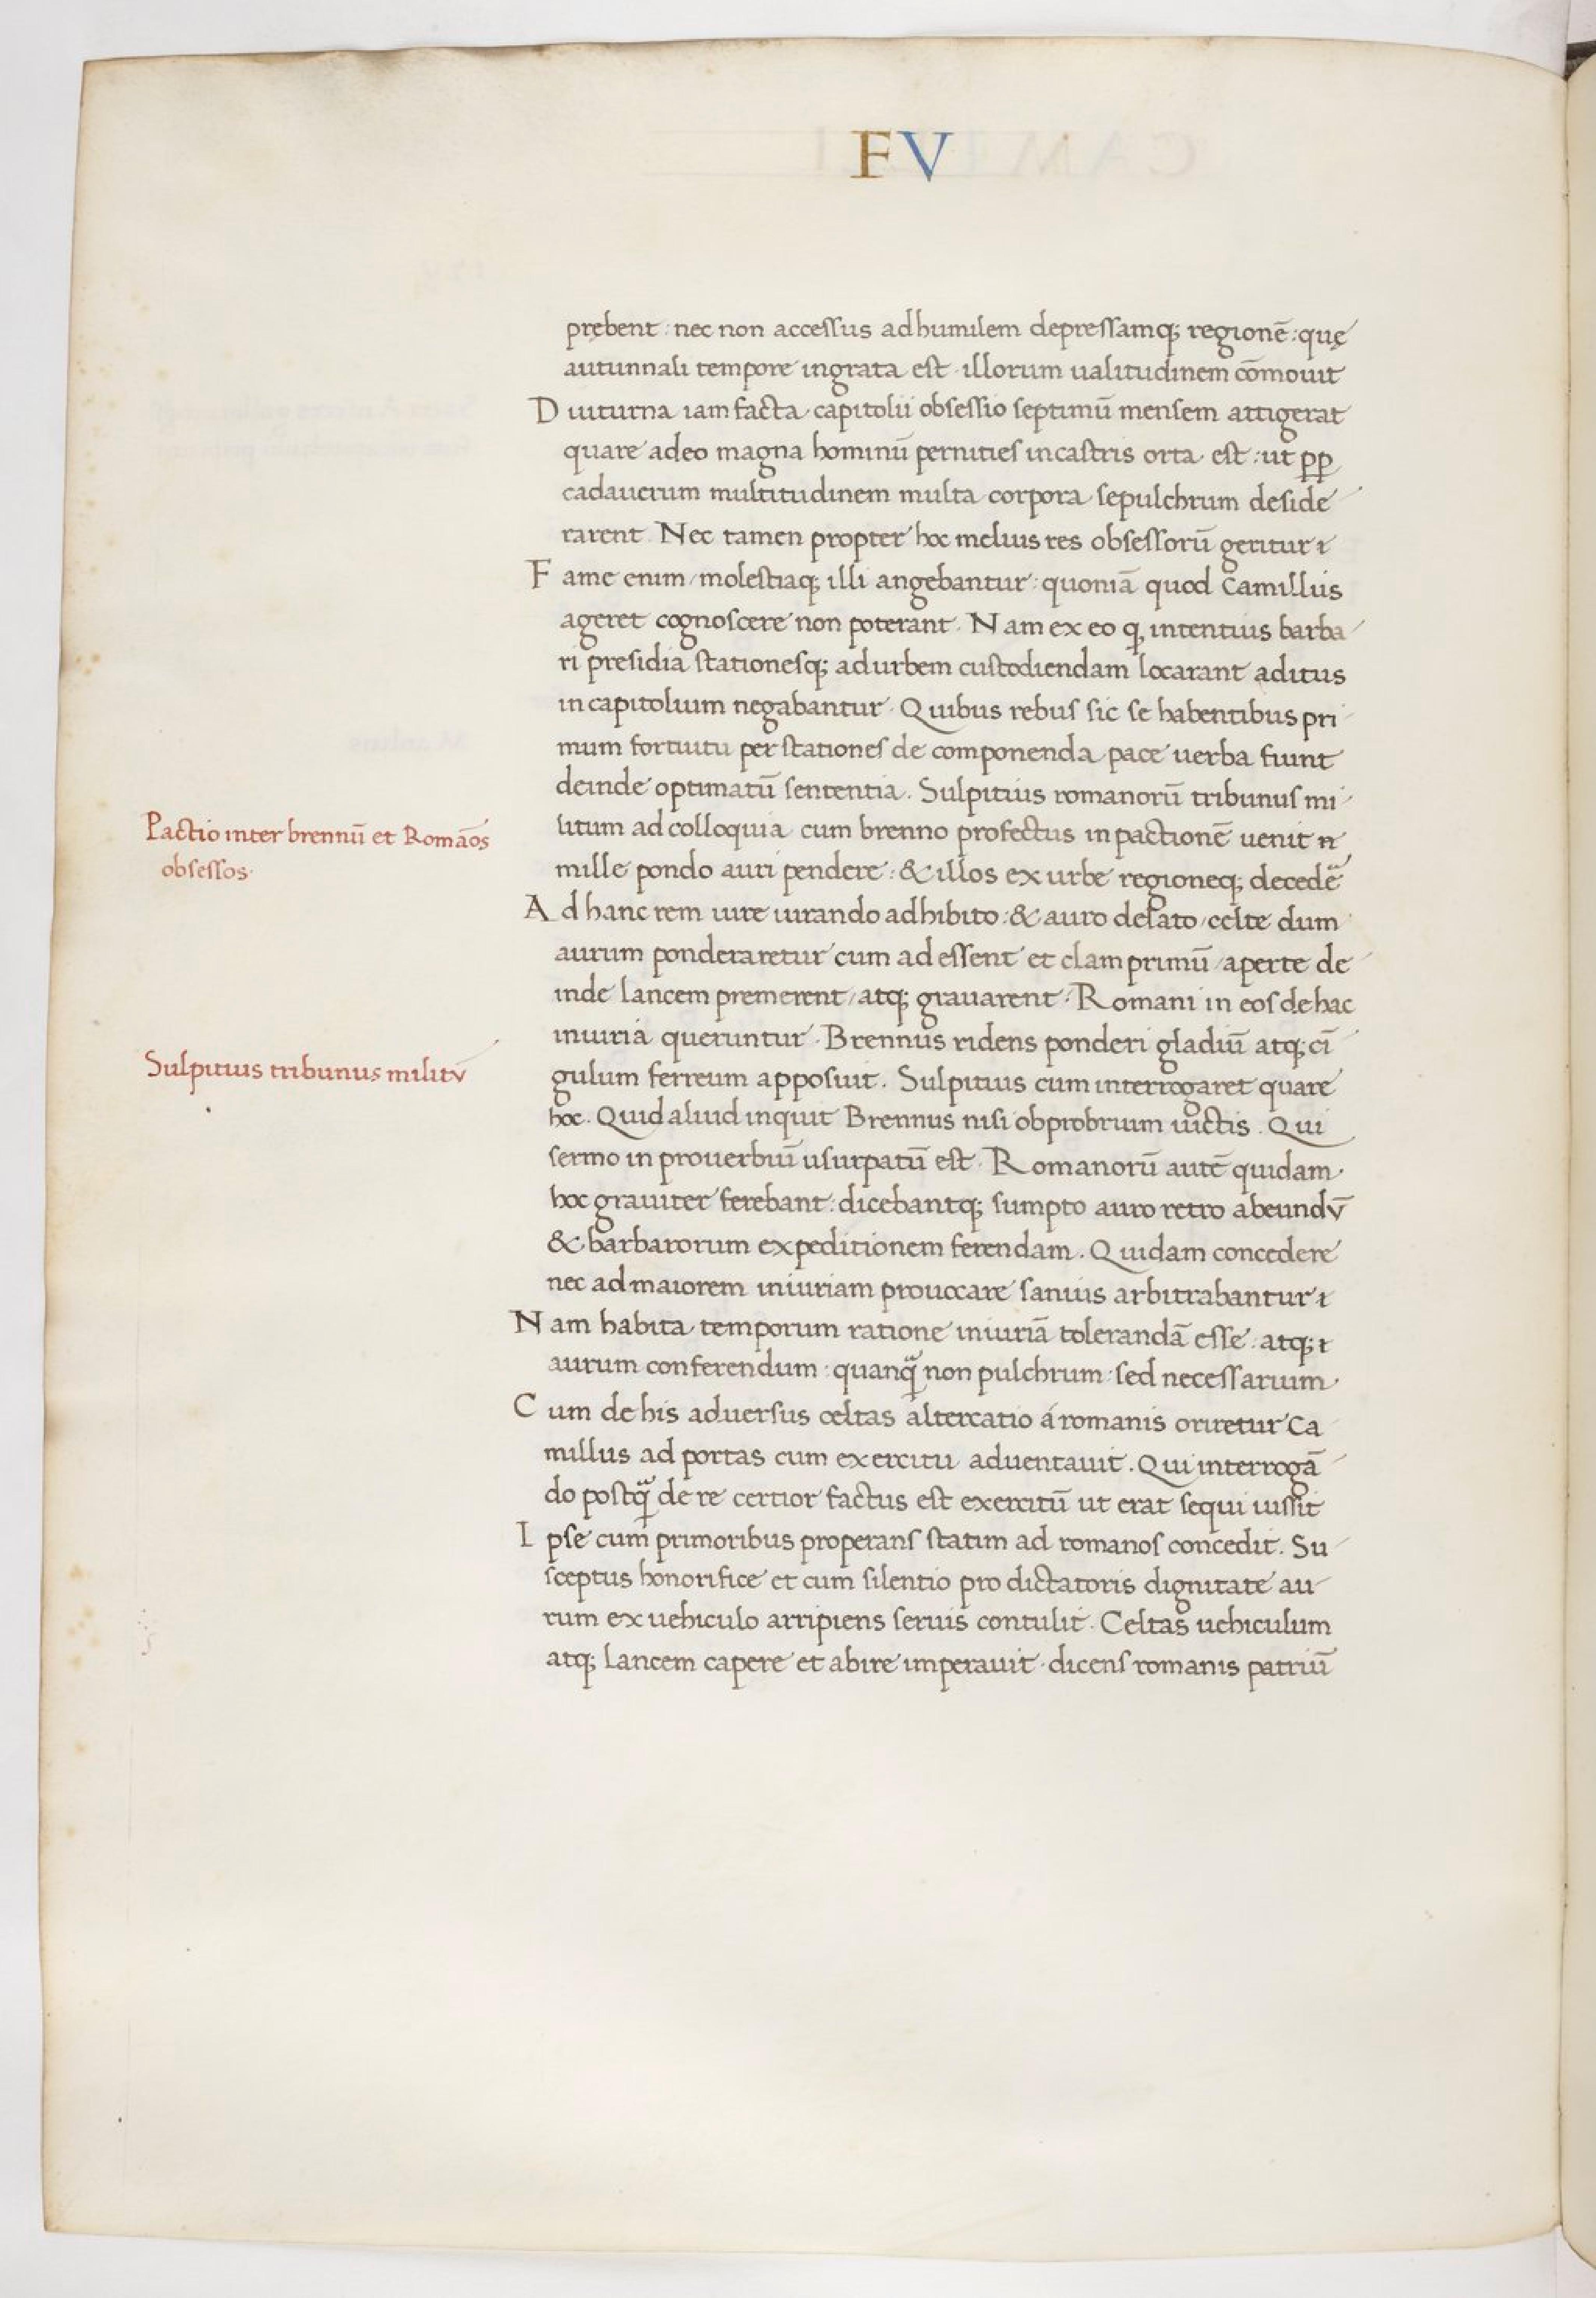 FV
prębent : nec non accessus ad humilem depressamq; regionē : quę
autunnali tempore ingrata est · illorum ualitudinem cōmouit
Diuturna iam facta capitolii obsessio septimū mensem attigerat
quare adeo magna hominū pernities in castris orta est : ut ꝑꝑ
cadauerum multitudinem multa corpora sepulchrum deside
rarent. Nec tamen propter hoc melius res obsessorū geritur
Fame enim / molestiaq; illi angebantur : quoniā quod Camillus
ageret cognoscere non poterant. Nam ex eo q intentius barba
ri presidia stationesq; ad urbem custodiendam locarant aditus
in capitolium negabantur. Quibus rebus sic se habentibus pri
mum fortuitu per stationes de componenda pace uerba fiunt
deinde optimatū sententia. Sulpitius romanorū tribunus mi
litum ad colloquia cum brenno profectus in pactionē uenit
Pactio inter brennū et Romāos
obsessos.
mille pondo auri pendere : & illos ex urbe regioneq; decedēͣ
Ad hanc rem iure iurando adhibito : & auro delato / celte dum
aurum ponderaretur cum adessent et clam primū / aperte de
inde lancem premerent / atq; grauarent. Romani in eos de hac
iniuria queruntur. Brennus ridens ponderi gladiū atq; cī
Sulpitius tribunus militv̄
gulum ferreum apposuit. Sulpitius cum interrogaret quare
hoc. Quid aliud inquit Brennus nisi obprobrium uictis. Qui
sermo in prouerbiū usurpatū est. Romanorū autē quidam
hoc grauiter ferebant : dicebantq; sumpto auro retro abeundv̄
& barbarorum expeditionem ferendam. Quidam concedere
nec ad maiorem iniuriam prouocare sanius arbitrabantur
Nam habita temporum ratione iniuriā tolerandā esse : atq;
aurum conferendum : quanqͣ non pulchrum : sed necessarium.
Cum de his aduersus celtas altercatio á romanis oriretur Ca
millus ad portas cum exercitu aduentauit. Qui interrogā
do postqͣ de re certior factus est exercitū ut erat sequi iussit
Ipse cum primoribus properans statim ad romanos concedit. Su
sceptus honorifice et cum silentio pro dictatoris dignitate au
rum ex uehiculo arripiens seruis contulit. Celtas uehiculum
atq; lancem capere et abire imperauit · dicens romanis patriū